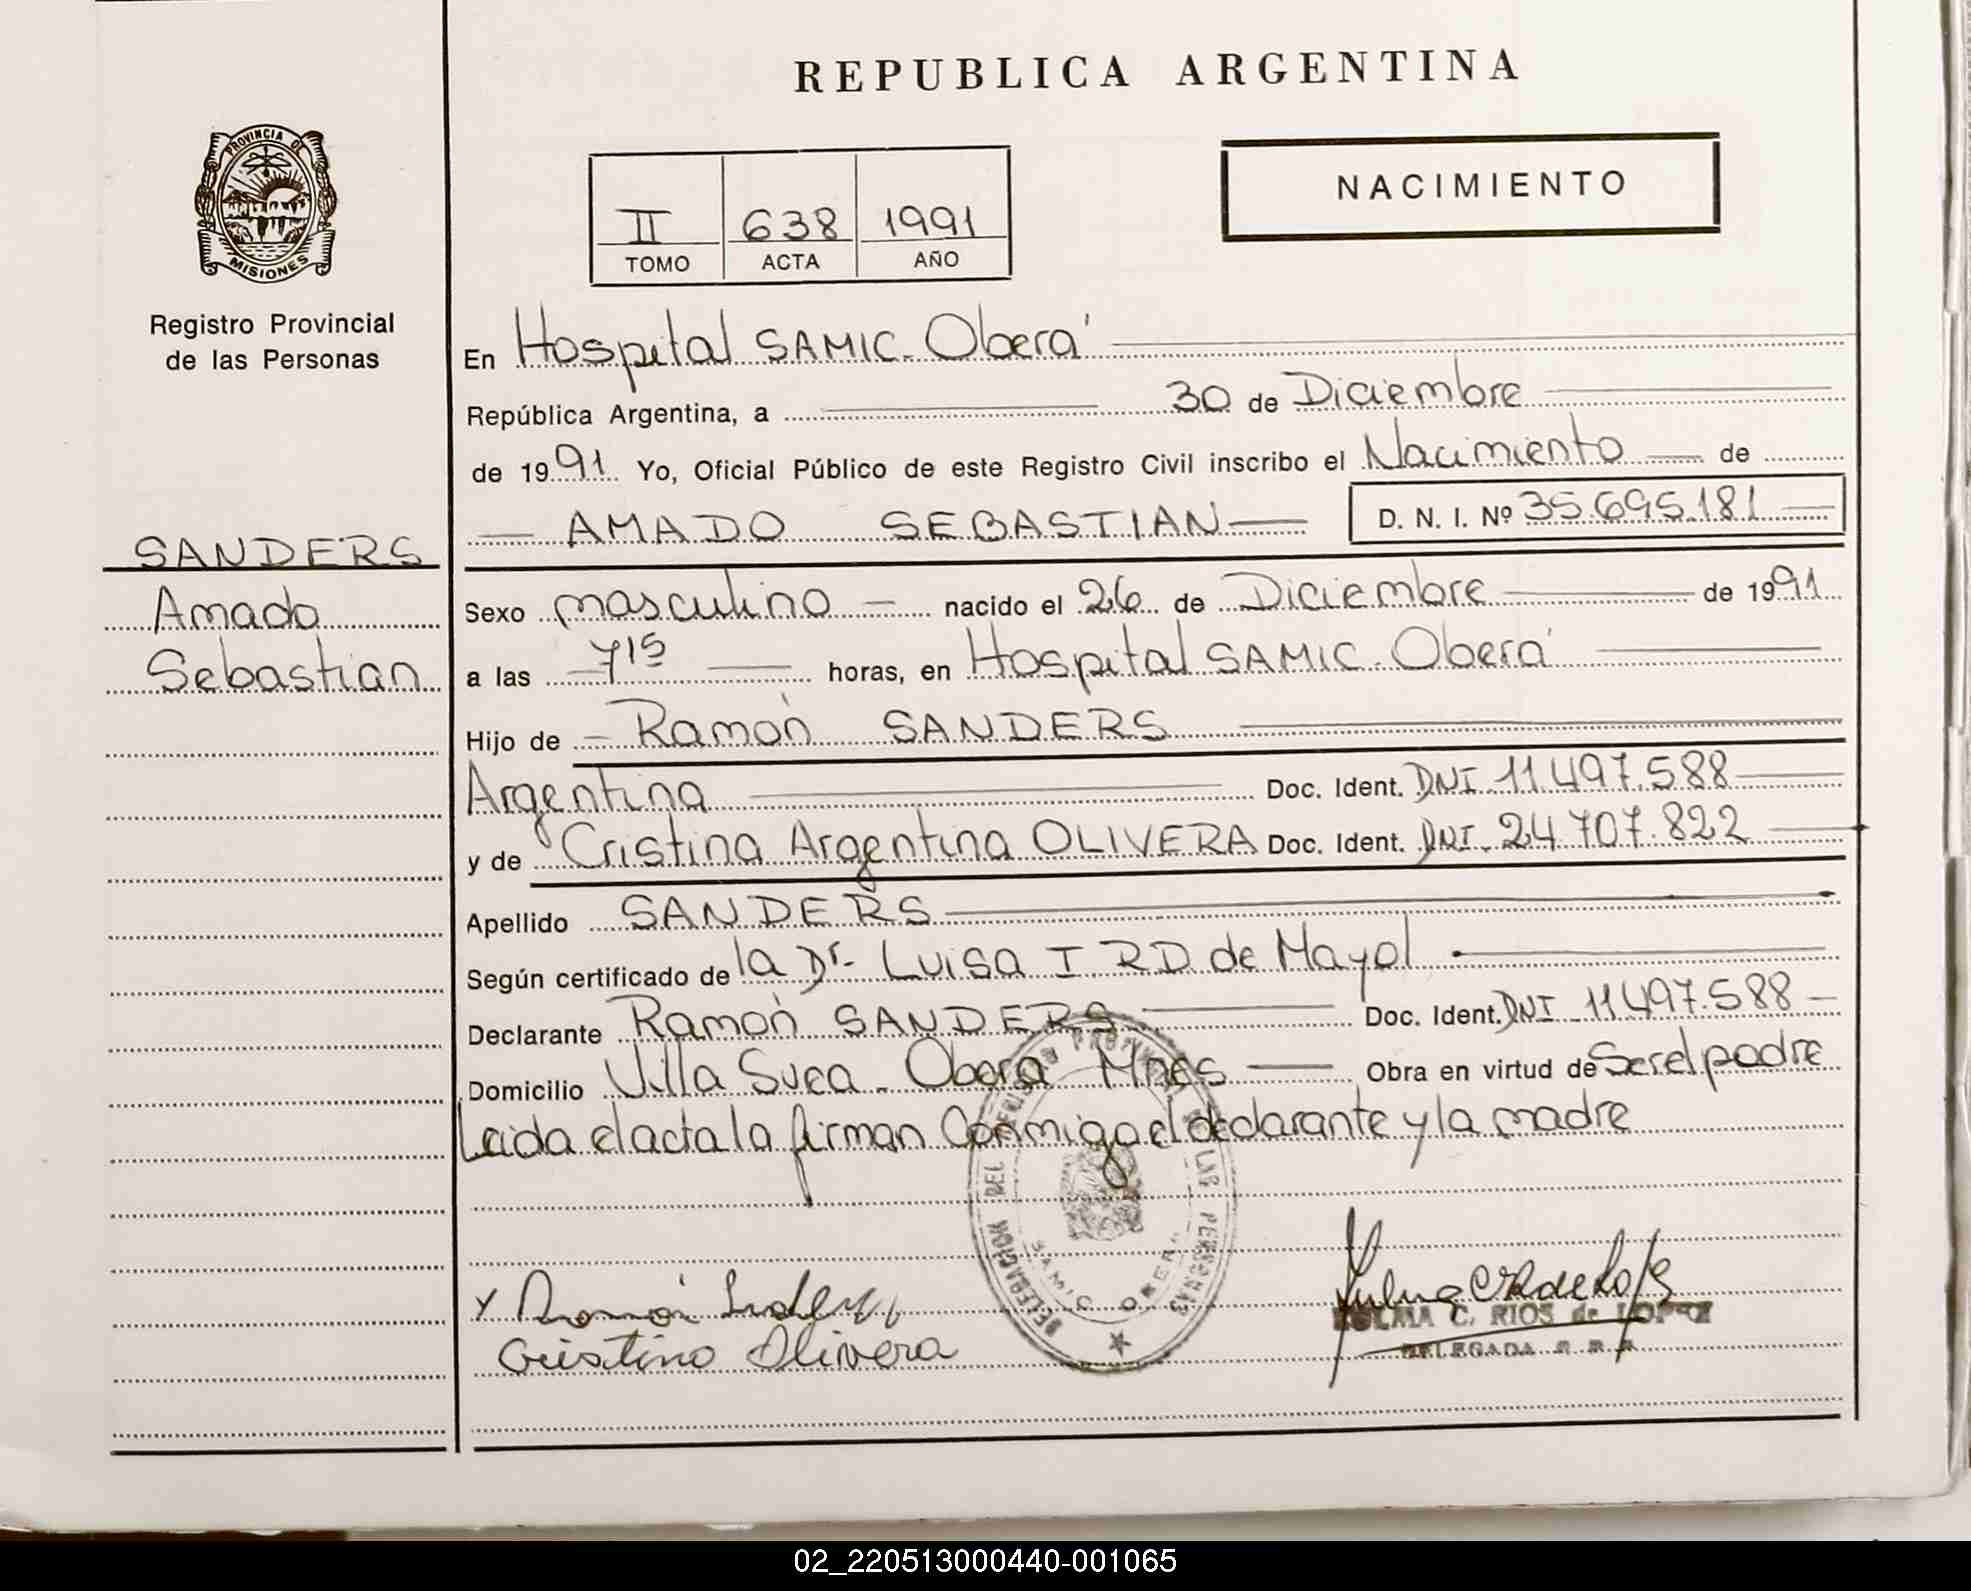 REPUBLICA ARGENTINA
PROVINCIA DE
MISIONES
Registro Provincial
de las Personas
NACIMIENTO
II 638 1991
TOMO ACTA AÑO
En Hospital SAMIC. Oberá
República Argentina, a 30 de Diciembre
de 1991 Yo, Oficial Público de este Registro Civil inscribo el Nacimiento de
AMADO SEBASTIAN D. N. I. Nº 35.695.181
SANDERS
Amado
Sebastian
Sexo masculino nacido el 26 de Diciembre de 1991
a las 7 15 horas, en Hospital SAMIC. Oberá
Hijo de Ramón SANDERS
Argentina Doc. Ident. DNI 11.497.588
y de Cristina Argentina OLIVERA Doc. Ident. DNI. 24.707.822
Apellido SANDERS
Según certificado de la Dr. Luisa I RD de Mayol
Declarante Ramón SANDERS Doc. Ident. DNI 11.497.588
Domicilio Villa Svea. Oberá Mnes Obra en virtud de Ser el padre
Leida el acta la firman Conmigo el declarante y la madre
DELEGACION DEL REGISTRO PROVINCIAL DE LAS PERSONAS
SAMIC OBERA
Ramón
Cristina Olivera
C. RIOS de LOPEZ
DELEGADA
02_220513000440-001065